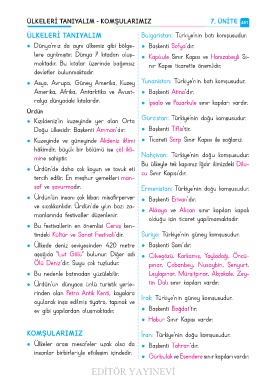 ÜLKELERİ TANIYALIM - KOMŞULARIMIZ
7. ÜNİTE
ÜLKELERİ TANIYALIM
Dünya'mız da aynı ülkemiz gibi bölge-
lere ayrılmıştır. Dünya 7 kıtadan oluş-
maktadır. Bu kıtalar üzerinde bağımsız
devletler bulunmaktadır.
Asya, Avrupa, Güney Amerika, Kuzey
Amerika, Afrika, Antarktika ve Avust-
ralya dünyadaki kıtalardır.
Ürdün
Kızıldeniz'in kuzeyinde yer alan Orta
Doğu ülkesidir. Başkenti Amman'dır.
Kuzeyinde ve güneyinde Akdeniz iklimi
hâkimdir, büyük bir bölümü ise çöl ikli-
mine sahiptir.
Ürdün'de daha çok koyun ve tavuk eti
tercih edilir. En meşhur yemekleri man-
saf ve şavurmadır.
Ürdün'ün insanı çok kibar, misafirperver
ve sıcakkanlıdır. Ürdün'de yılın bazı za-
manlarında festivaller düzenlenir.
Bu festivallerin en önemlisi Ceraş ken-
tindeki Kültür ve Sanat Festivali'dir.
Ülkede deniz seviyesinden 420 metre
aşağıda "Lut Gölü" bulunur. Diğer adı
Ölü Deniz'dir. Suyu çok tuzludur.
Bu nedenle batmadan yüzülebilir.
Ürdün'ün dünyaca ünlü turistik yerle-
rinden olan Petra Antik Kenti, kayalara
oyularak inşa edilmiş tiyatro, tapınak ve
ev gibi yapılardan oluşmaktadır.
KOMŞULARIMIZ
Ülkeler arası mesafeler uzak olsa da
insanlar birbirleriyle etkileşim içindedir.
Bulgaristan: Türkiye'nin batı komşusudur.
Başkenti Sofya'dır.
Kapıkule Sınır Kapısı ve Hamzabeyli Sı-
nır Kapısı ticarette önemlidir.
Yunanistan: Türkiye'nin batı komşusudur.
Başkenti Atina'dır.
İpsala ve Pazarkule sınır kapıları vardır.
Gürcistan: Türkiye'nin doğu komşusudur.
Başkenti Tiflis'tir.
Ticareti Sarp Sınır Kapısı ile sağlarız.
Nahçıvan: Türkiye'nin doğu komşusudur.
Bu ülkeyle tek kapımız Iğdır ilimizdeki Dilu-
cu Sınır Kapısı'dır.
Ermenistan: Türkiye'nin doğu komşusudur.
Başkenti Erivan'dır.
Akkaya ve Alican sınır kapıları kapalı
olduğu için ticaret yapılmamaktadır.
Suriye: Türkiye'nin güney komşusudur.
Başkenti Şam'dır.
Cilvegözü, Karkamış, Yayladağı, Öncü-
pınar, Çobanbey, Nusaybin, Şenyurt,
Ceylanpınar, Mürşitpınar, Akçakale, Zey-
tin Dalı sınır kapıları vardır.
Irak: Türkiye'nin güney komşusudur.
Başkenti Bağdat'tır.
Habur Sınır Kapısı vardır.
İran: Türkiye'nin doğu komşusudur.
Başkenti Tahran'dır.
Gürbulak ve Esendere sınır kapıları vardır.
EDİTÖR YAYINEVİ